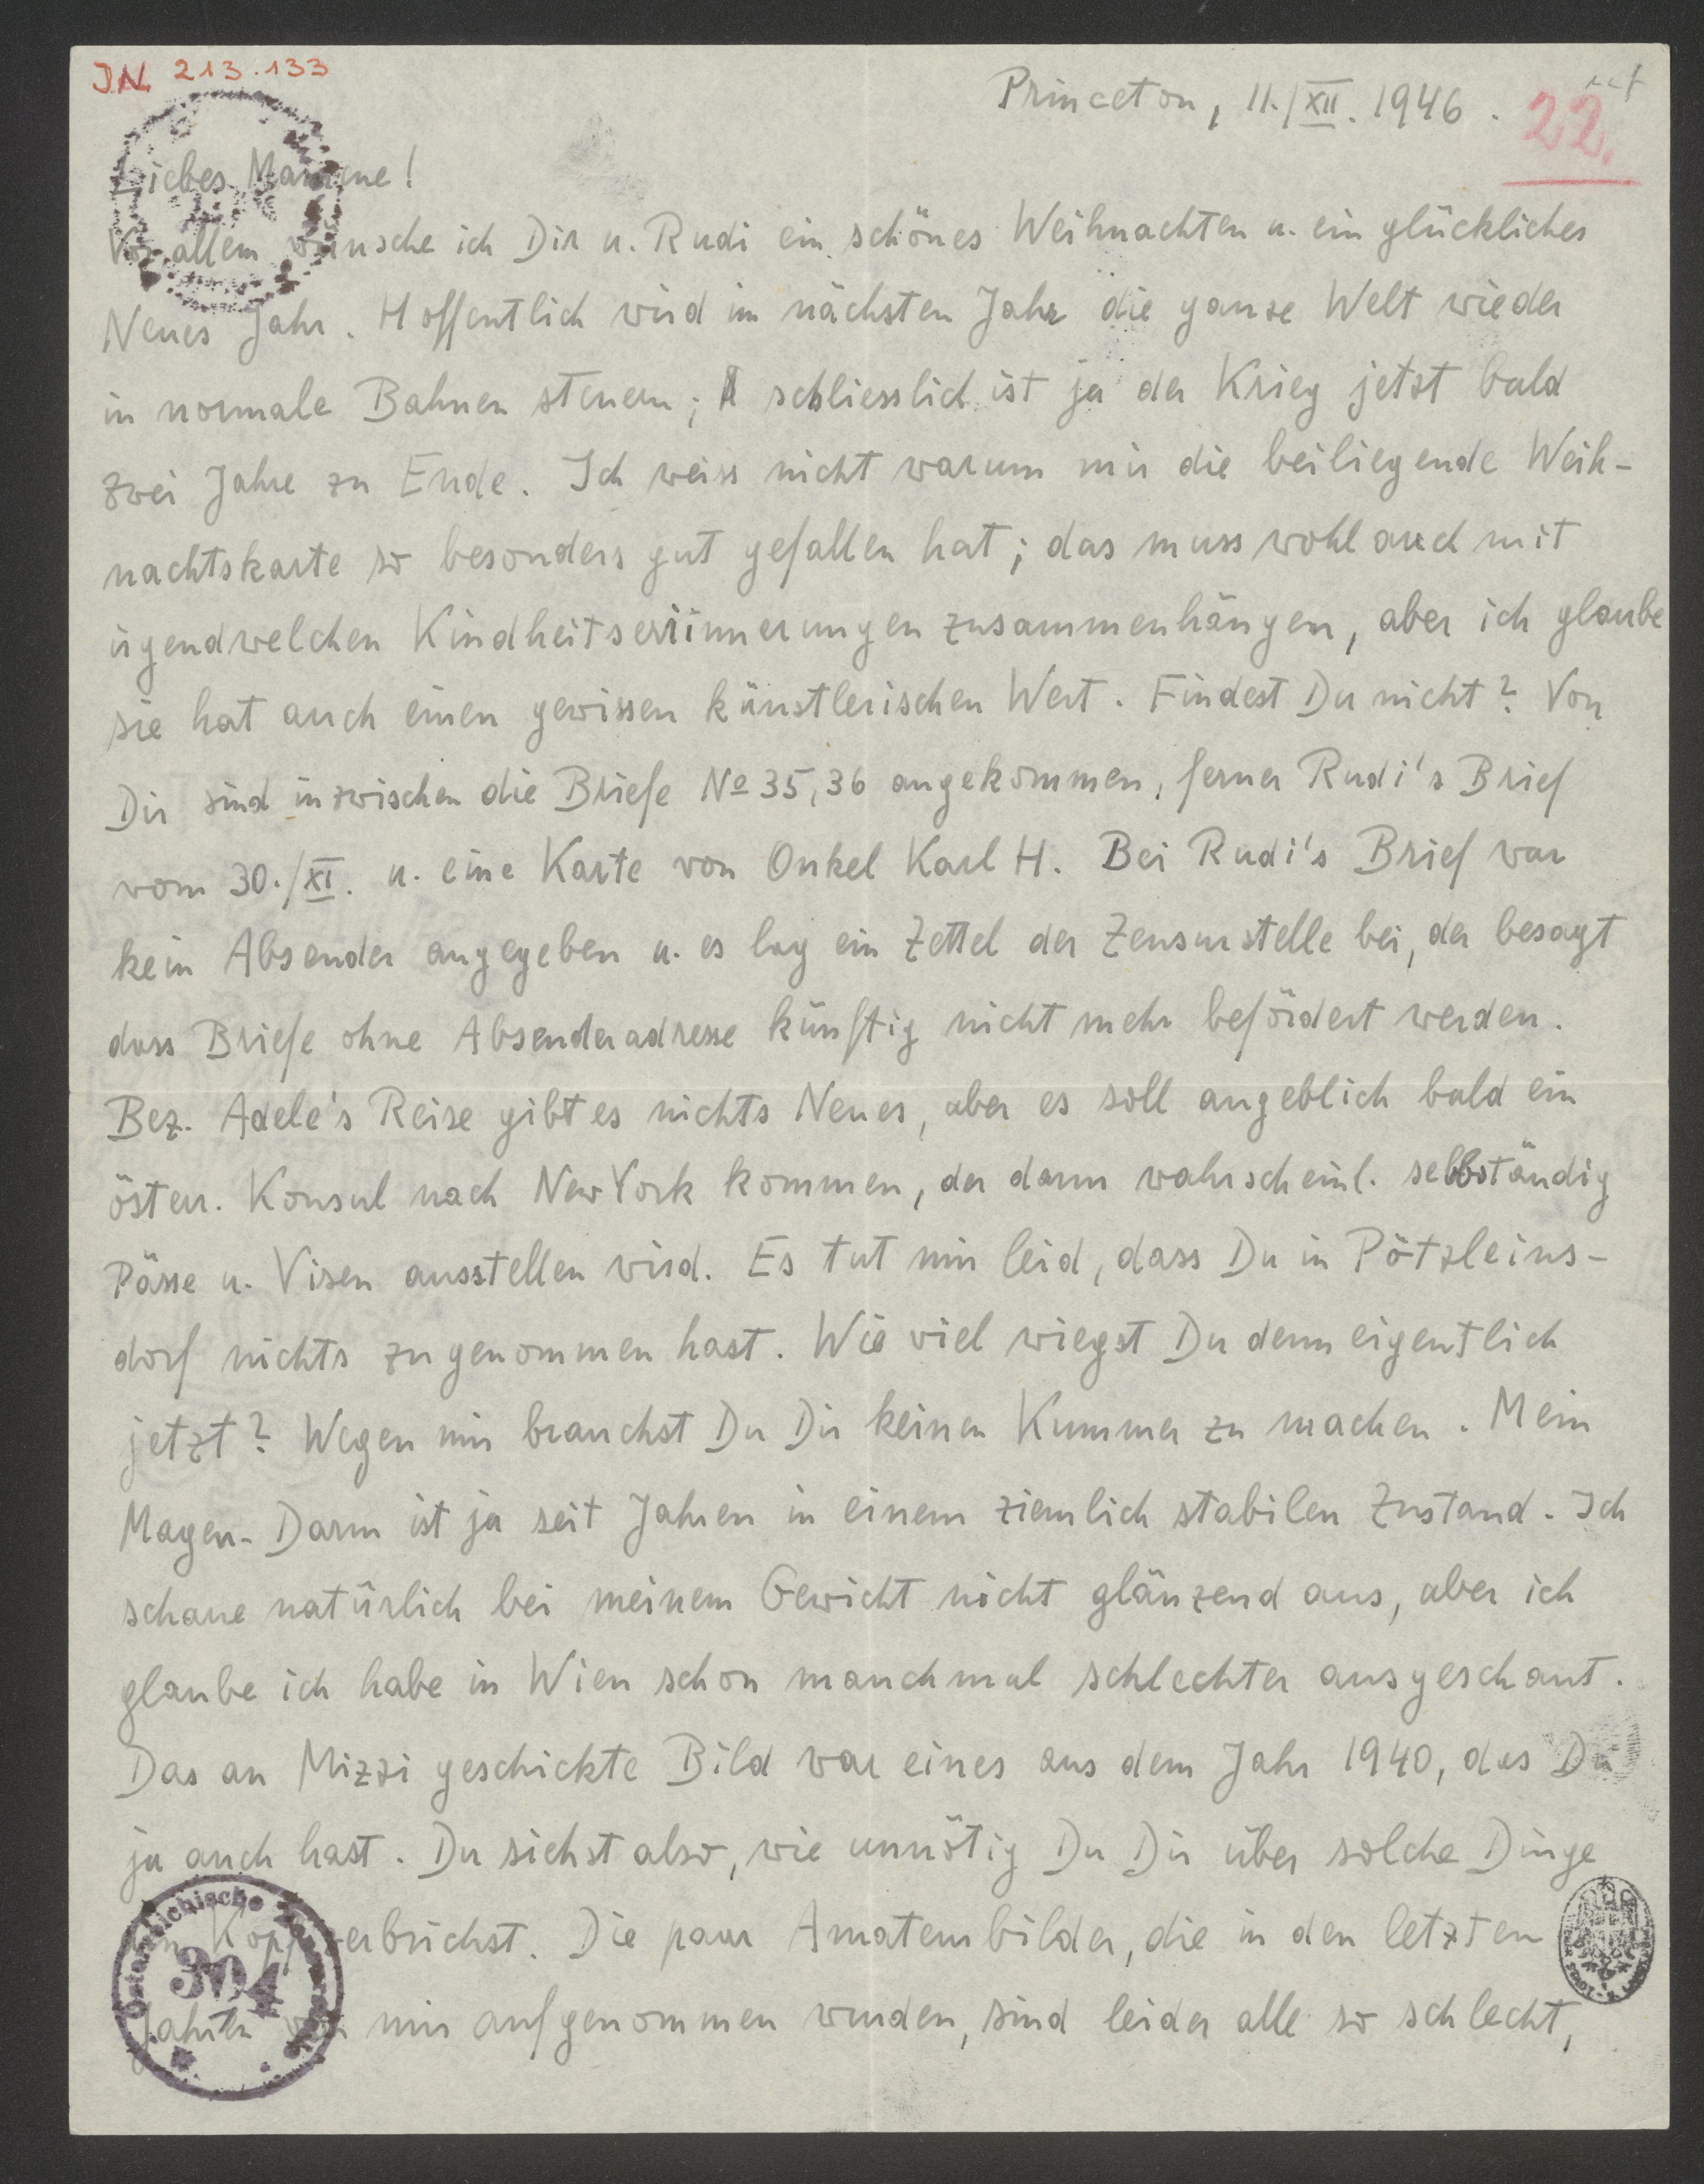 I.N. 213.133
Princeton, 11./XII. 1946.
22.
Liebes Mamme!
Vor allem wünsche ich Dir u. Rudi ein schönes Weihnachten u. ein glückliches
Neues Jahr. Hoffentlich wird im nächsten Jahr die ganze Welt wieder
in normale Bahnen steuern; schliesslich ist ja der Krieg jetzt bald
zwei Jahre zu Ende. Ich weiss nicht warum mir die beiliegende Weih-
nachtskarte so besonders gut gefallen hat; das muss wohl auch mit
irgendwelchen Kindheitserinnerungen zusammenhängen, aber ich glaube
sie hat auch einen gewissen künstlerischen Wert. Findest Du nicht? Von
Dir sind inzwischen die Briefe No 35, 36 angekommen, ferner Rudi's Brief
vom 30./XI. u. eine Karte von Onkel Karl H. Bei Rudi's Brief war
kein Absender angegeben u. es lag ein Zettel der Zensurstelle bei, der besagt
dass Briefe ohne Absenderadresse künftig nicht mehr befördert werden.
Bez. Adele's Reise gibt es nichts Neues, aber es soll angeblich bald ein
österr. Konsul nach New York kommen, der dann wahrscheinl. selbständig
Pässe u. Visen ausstellen wird. Es tut mir leid, dass Du in Pötzleins-
dorf nichts zugenommen hast. Wie viel wiegst Du denn eigentlich
jetzt? Wegen mir brauchst Du Dir keinen Kummer zu machen. Mein
Magen-Darm ist ja seit Jahren in einem ziemlich stabilen Zustand. Ich
schaue natürlich bei meinem Gewicht nicht glänzend aus, aber ich
glaube ich habe in Wien schon manchmal schlechter ausgeschaut.
Das an Mizzi geschickte Bild war eines aus dem Jahr 1940, das Du
ja auch hast. Du siehst also, wie unnötig Du Dir über solche Dinge
den Kopf zerbrichst. Die paar Amateurbilder, die in den letzten
Jahren von mir aufgenommen wurden, sind leider alle so schlecht,
Österreichische
304